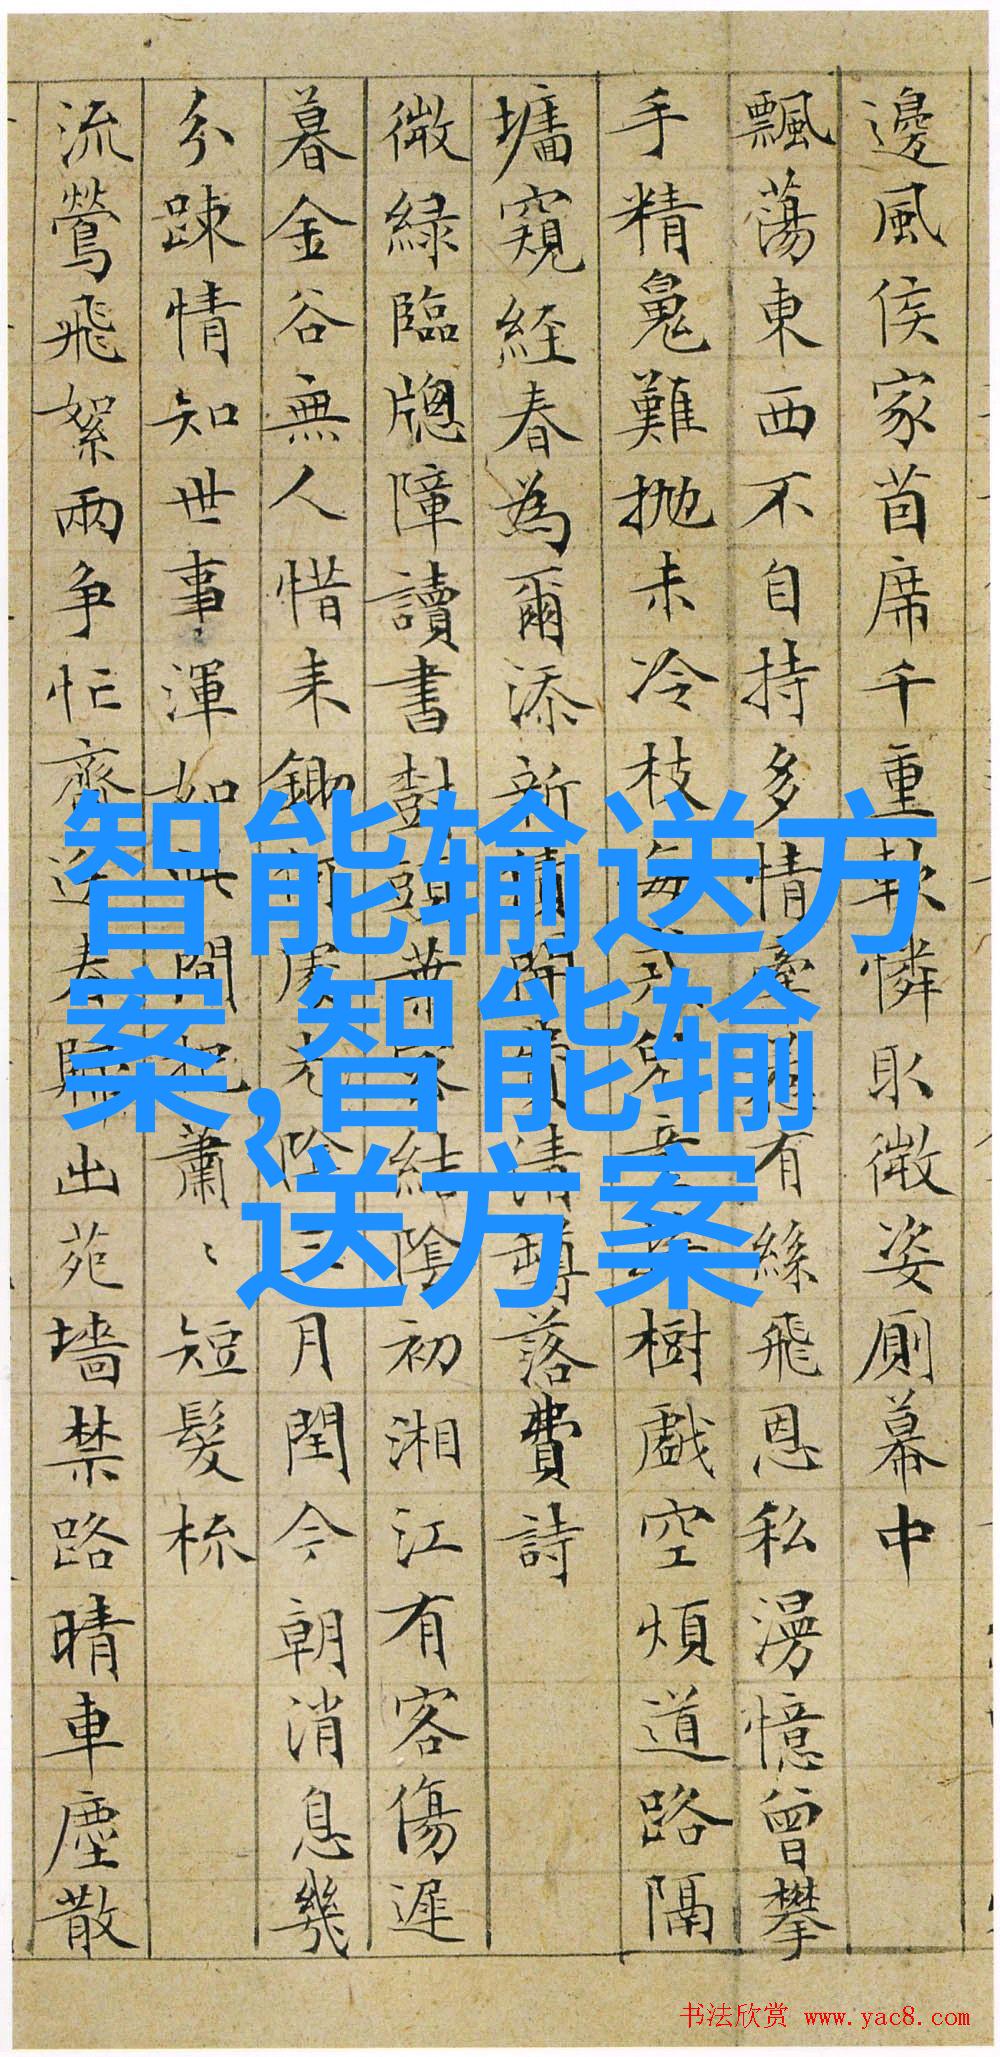 邊風侯家茵席千重軟憐取微姿廁幕中
飄蕩東西不自持多情有絲飛恩私漫憶曾攀
手精䰟難拋未冷枝每樹戲空煩道路隔
墉窺經春為爾添新清罇落費詩
微綠臨牕障讀書封頭葉結陰初湘江有客傷遲
暮金谷無人惜耒鋤何處光陰三月閏今朝消息幾
分疎情知世事渾如間把蕭〻短髮梳
流鶯飛絮兩争忙齊送春歸出苑墻禁路晴車塵散
智能输送方
案,智能输
送方案
书法欣赏 www.yac8.com